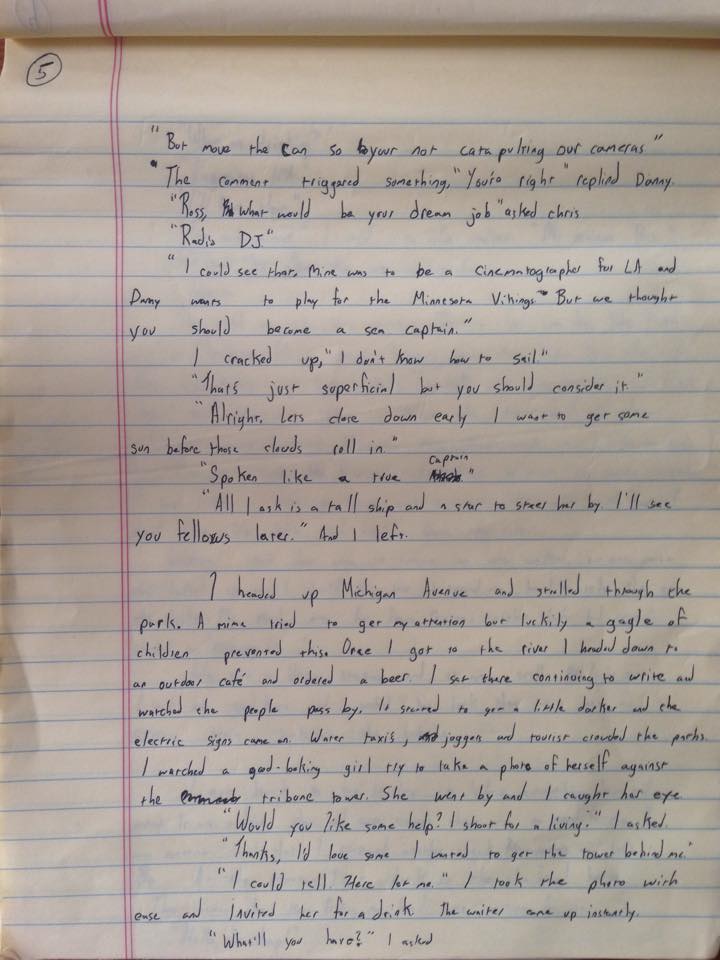 5
"But move the can so your not catapulting our cameras"
"The comment triggered something, "You're right" replied Danny.
"Ross, what would be your dream job" asked chris
"Radio DJ"
"I could see that, Mine was to be a cinematographer for LA and
Danny wants to play for the Minnesota Vikings. But we thought
you should become a sea captain."
I cracked up, "I don't know how to sail."
"Thats just superficial but you should consider it."
"Alright, Lets close down early I want to get some
sun before those clouds roll in."
"Spoken like a true captain."
"All I ask is a tall ship and a star to steer her by. I'll see
you fellows later." And I left.
I headed up Michigan Avenue and strolled through the
park. A mime tried to get my attention but luckily a gagle of
children prevented this. Once I got to the river I headed down to
an outdoor café and ordered a beer. I sat there continuing to write and
watched the people pass by. It started to get a little darker and the
electric signs came on. Water taxis, joggers and tourist crowded the paths.
I watched a good-looking girl try to take a photo of herself against
the tribune tower. She went by and I caught her eye
"Would you like some help? I shoot for a living." I asked.
"Thanks, I'd love some I wanted to get the tower behind me."
"I could tell. Here let me." I took the photo with
ease and invited her for a drink. The waiter came up instantly.
"What'll you have?" I asked